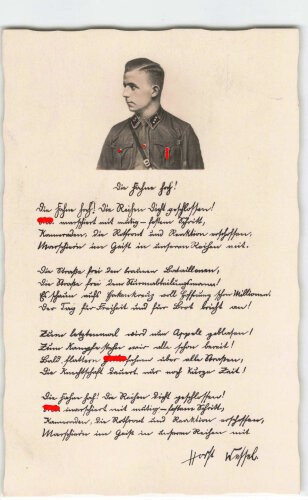 Die Fahne hoch!
Die Fahne hoch! Die Reihen dicht geschlossen!
marschiert mit mutig-festem Schritt,
Kameraden, die Rotfront und Reaktion erschossen,
Marschieren im Geist in unseren Reihen mit.
Die Straße frei den braunen Bataillonen,
Die Straße frei dem Sturmabteilungsmann!
Es schaun aufs Hakenkreuz voll Hoffnung schon Millionen.
Der Tag für Freiheit und für Brot bricht an!
Zum letztenmal wird nun Appell geblasen!
Zum Kampfe stehn wir alle schon bereit!
Bald flattern fahnen über alle Straßen,
Die Knechtschaft dauert nur noch kurze Zeit!
Die Fahne hoch! Die Reihen dicht geschlossen!
marschiert mit mutig-festem Schritt,
Kameraden, die Rotfront und Reaktion erschossen,
Marschieren im Geist in unseren Reihen mit
Horst Wessel.